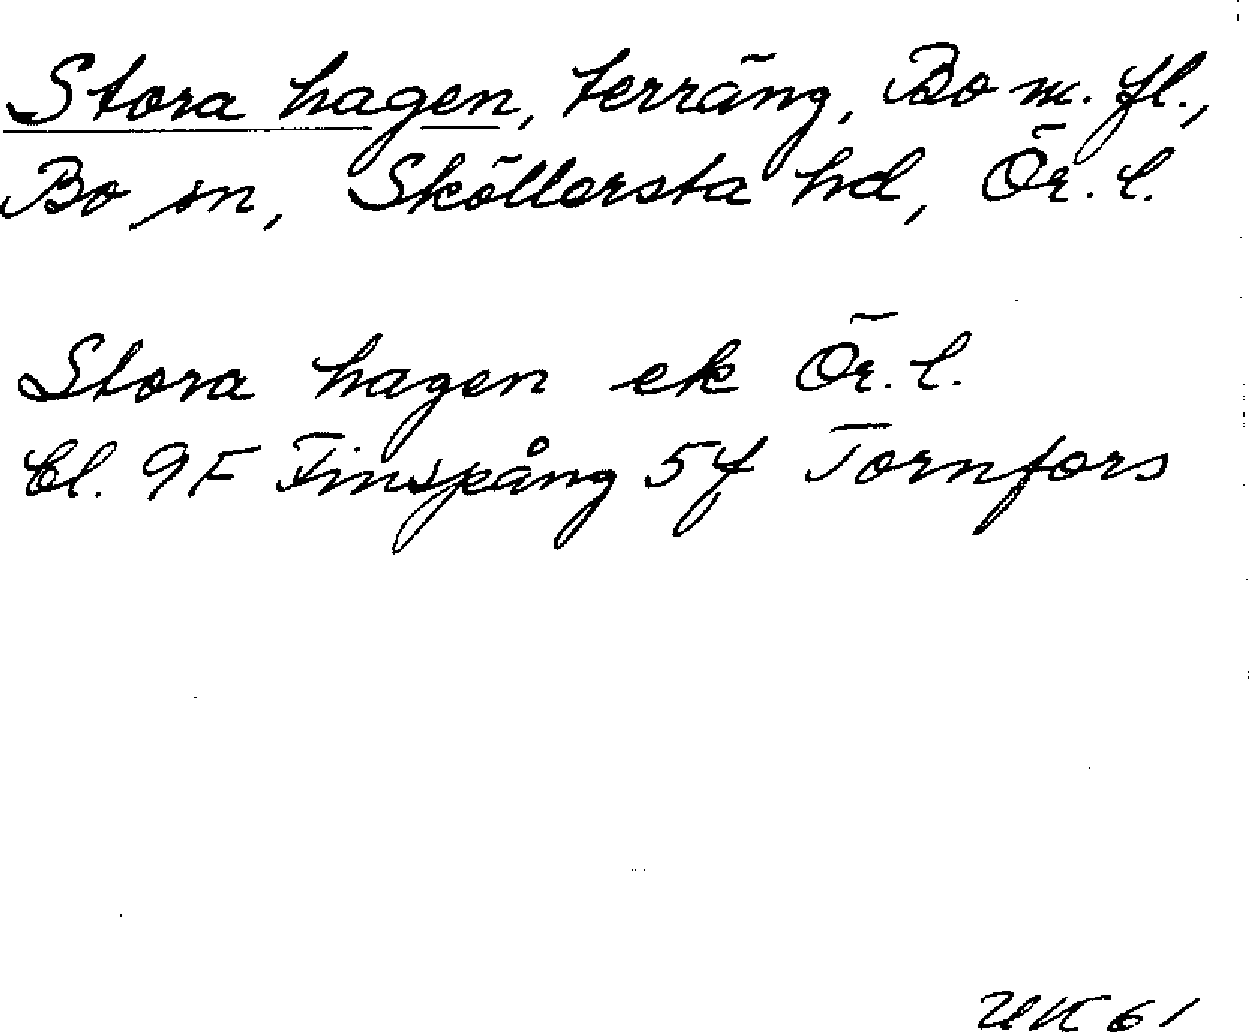 Stora hagen, terräng, Bo m. fl.,
Bo sn, Sköllersta hd, Ör. l.
Stora hagen ek Ör. l.
bl. 9F Finspång 5f Tornfors
UK 61